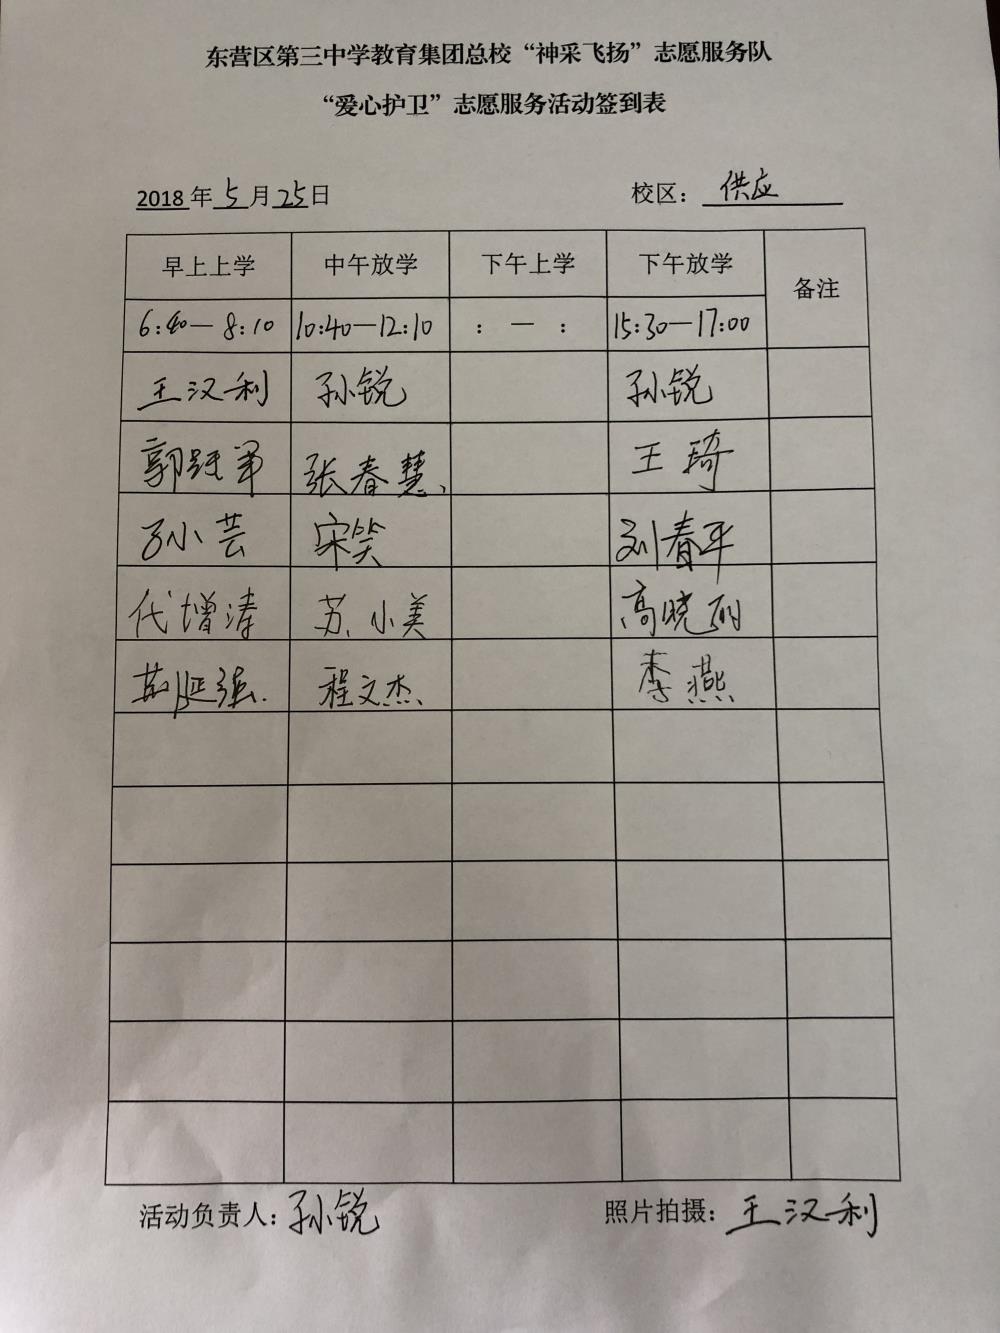 东营区第三中学教育集团总校“神采飞扬”志愿服务队
“爱心护卫”志愿服务活动签到表
2018年5月25日 校区：供应
早上上学 中午放学 下午上学 下午放学 备注
6:40—8:10 10:40—12:10 : — : 15:30—17:00
王汉利 孙锐 孙锐
郭 军 张春慧、 王琦
孙小芸 宋笑 刘春平
代增涛 苏小美 高晓丽
延强. 程文杰 李燕
活动负责人：孙锐 照片拍摄：王汉利